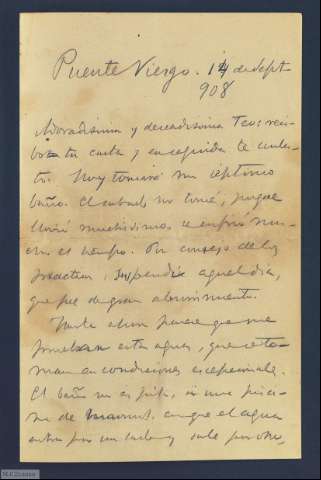 Puente Viesgo. 14 de Sept
908
Adoradisima y deseadisima Teo: reci-
bo tu carta y enseguida te contes-
to. Hoy tomaré mi septimo
baño. El sabado no tomé, porque
llovió muchisimo, se enfrió mu-
cho el tiempo. Por consejo de los
practicos, suspendí aquel dia,
que fue de gran aburrimiento.
Hasta ahora parece que me
prueban estas aguas, que se to-
man en condiciones excepcionales.
El baño no es pila, si una pisci-
na de marmol, aunque el agua
entra por un lado y sale por otro,